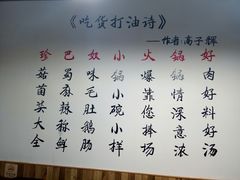 《吃货打油诗》
—作者 高子辉
珍菇苗头大全
巴蜀麻辣称鲜
奴味毛肚鹅肠
小锅小碗小样
火爆靠您捧场
锅锅情深意浓
好肉好料好汤